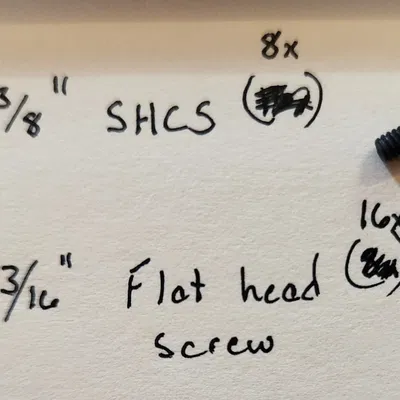 8x
3/8" SHCS
16x
3/16" Flat head
screw